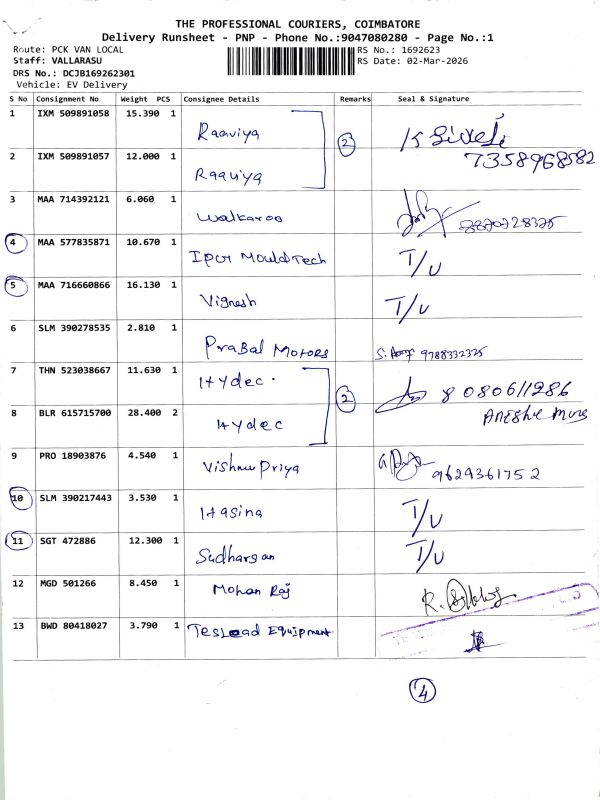 THE PROFESSIONAL COURIERS, COIMBATORE
Delivery Runsheet - PNP - Phone No.:9047080280 - Page No.:1
Route: PCK VAN LOCAL
RS No.: 1692623
Staff: VALLARASU
RS Date: 02-Mar-2026
DRS No.: DCJB169262301
Vehicle: EV Delivery
S No Consignment No Weight PCS Consignee Details Remarks Seal & Signature
1 IXM 509891058 15.390 1 Raaviya 2
7358968582
2 IXM 509891057 12.000 1 Raaviya
3 MAA 714392121 6.060 1 Walkaroo
4 MAA 577835871 10.670 1 Ipcr Mould Tech T/U
5 MAA 716660866 16.130 1 Vignesh T/U
6 SLM 390278535 2.810 1 Prabal Motors 9788332325
7 THN 523038667 11.630 1 Hydec 2 8080611286
8 BLR 615715700 28.400 2 Hydec
9 PRO 18903876 4.540 1 Vishnu Priya 9629361752
10 SLM 390217443 3.530 1 Hasina T/U
11 SGT 472886 12.300 1 Sudharsan T/U
12 MGD 501266 8.450 1 Mohan Raj
13 BWD 80418027 3.790 1 Teslead Equipment
4